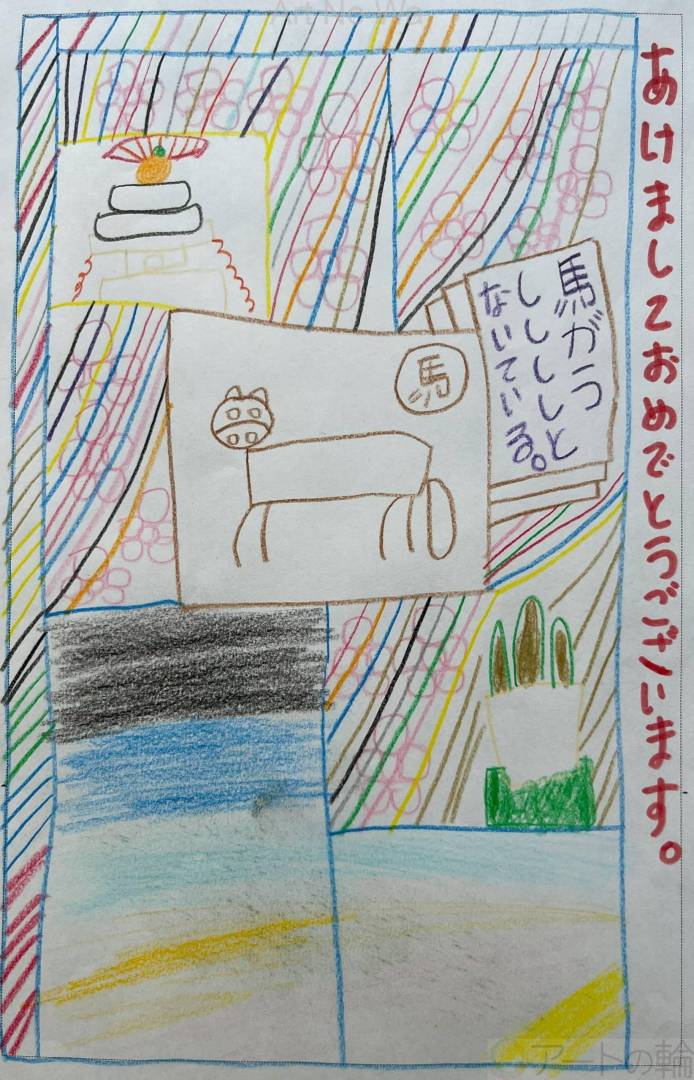 Art No Wa
あけましておめでとうございます。
馬がう
ししししと
ないている。
馬
アートの輪